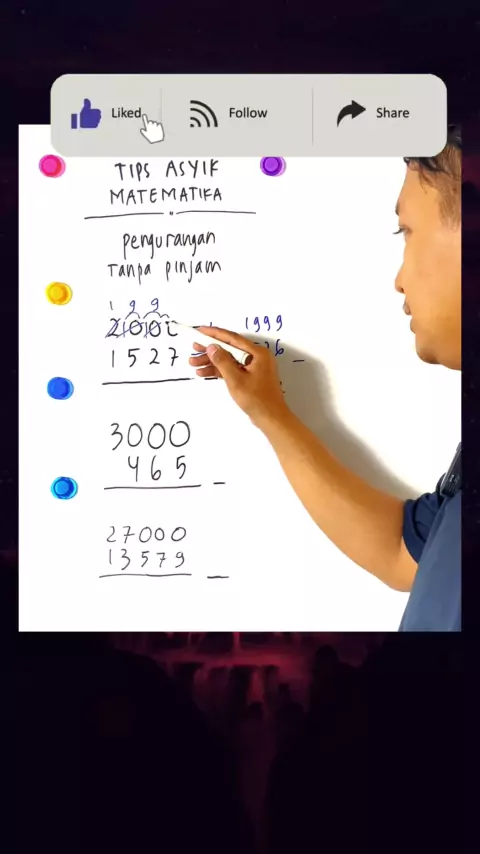 Liked Follow Share
TIPS ASYIK
MATEMATIKA
pengurangan
Tanpa pinjam
1 9 9
2000 1999
1527
3000
465
27000
13579